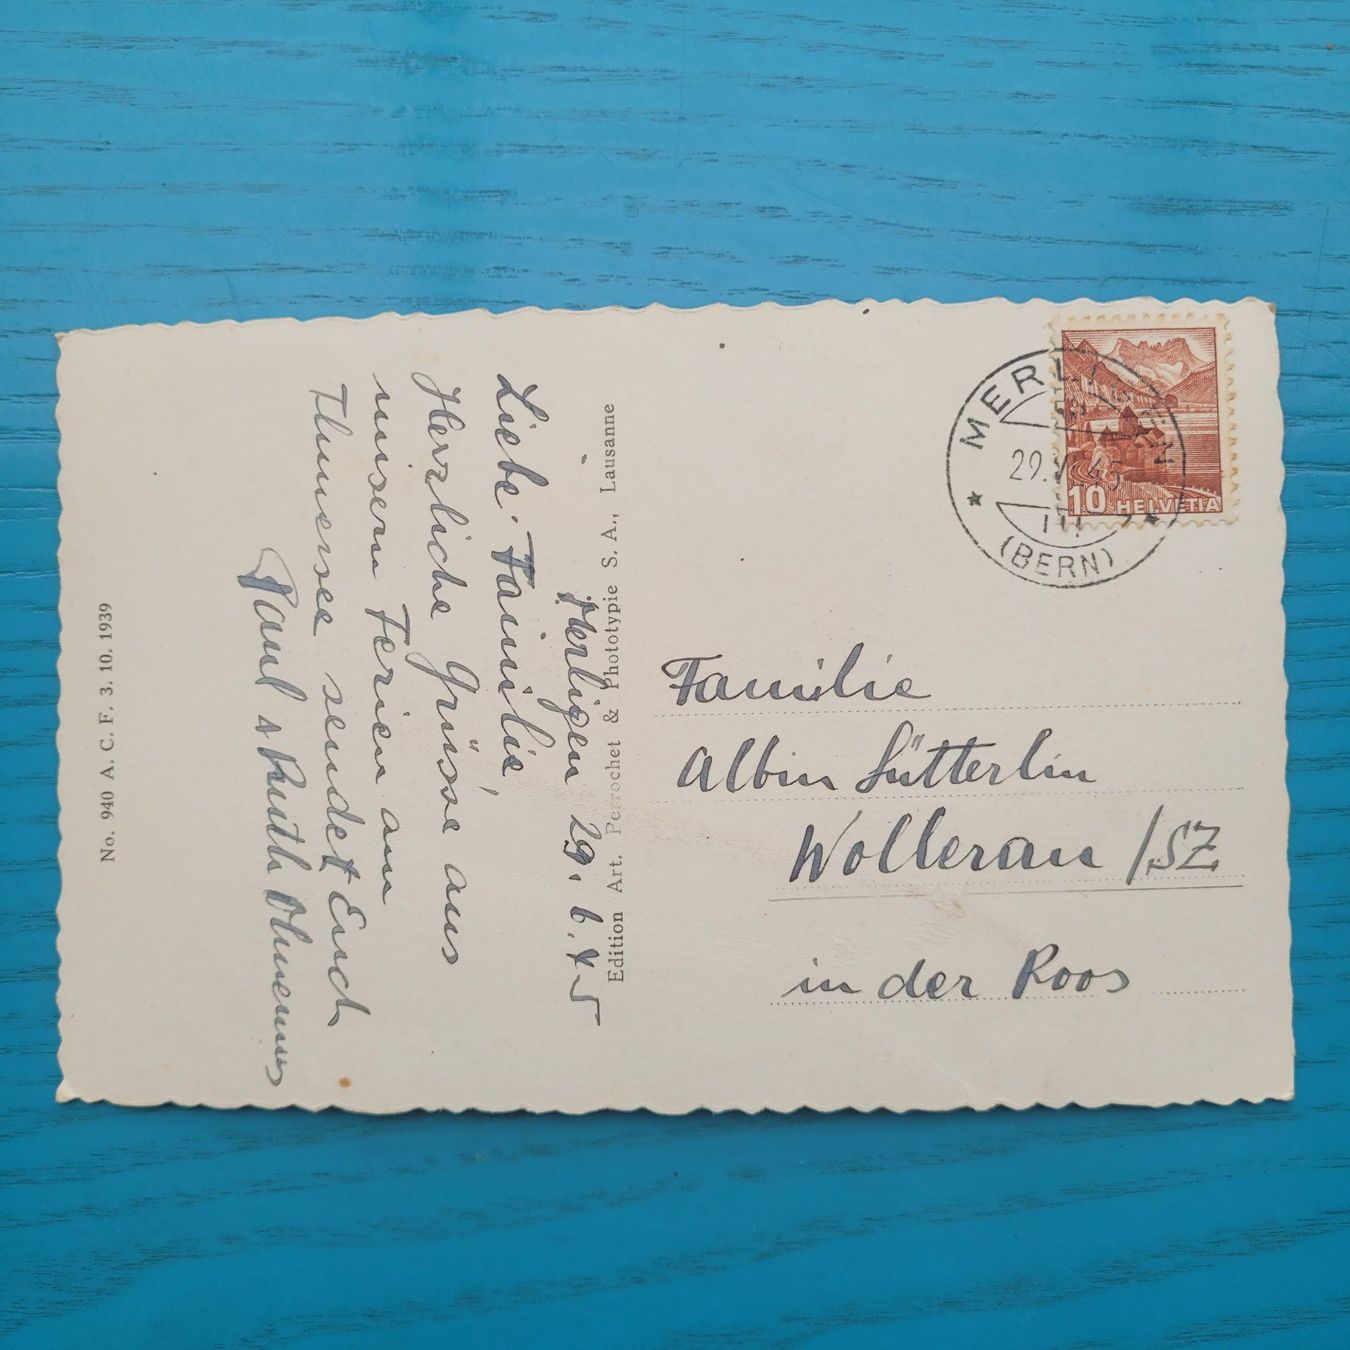 Merligen 29. 6. 45
Liebe Familie!
Herzliche Grüsse aus
unsern Ferien am
Thunersee sendet Euch
Paul & Ruth
No. 940 A. C. F. 3. 10. 1939
Edition Art. Perrochet & Phototypie S. A., Lausanne
MERLIGEN
29.VI.45
(BERN)
10 HELVETIA
Familie
Albin Sütterlin
Wollerau /SZ
in der Roos